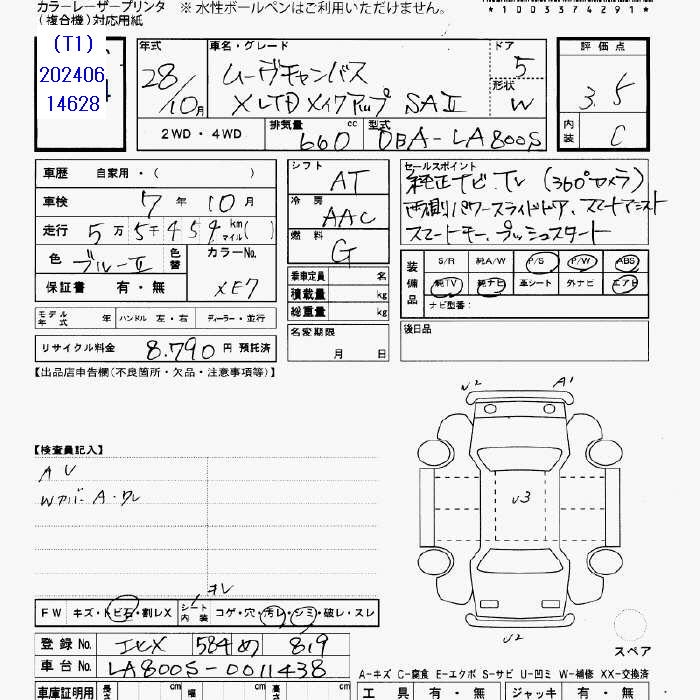 カラーレーザープリンタ ※ 水性ボールペンはご利用いただけません。
(複合機)対応用紙
*1003374291*
(T1)
202406
14628
年式 車名・グレード ドア 評価点
28/10月 ムーヴキャンバス 5 3.5
XLTDメイクアップ SAⅡ 形状 W
2WD・4WD 排気量 660 cc 型式 DBA-LA800S 内装 C
車歴 自家用・( )
車検 7年 10月
走行 5万5千459 km マイル( )
色 ブルーⅡ 色替 カラーNo. XE7
保証書 有・無
モデル年式 年 ハンドル 左・右 ディーラー・並行
リサイクル料金 8.790 円 預託済
シフト AT
冷房 AAC
燃料 G
乗車定員 名
積載量 kg
総重量 kg
名変期限
月 日
セールスポイント
純正ナビ・TV (360°カメラ)
両側パワースライドドア、スマートアシスト
スマートキー、プッシュスタート
装備品 S/R 純A/W P/S P/W ABS
純TV 純ナビ 革シート 外ナビ エアB
ナビ型番:
後日品
【出品店申告欄(不良箇所・欠品・注意事項等)】
【検査員記入】
AU
Wアバ・A・ワレ
U2 A1
U3
U2
スペア
オレ
FW キズ・トビ石・割レX シート内装 コゲ・穴・汚レ・シミ・破レ・スレ
登録No. 584 め 819
車台No. LA800S-0011438
A-キズ C-腐食 E-エクボ S-サビ U-凹ミ W-補修 XX-交換済
車庫証明用 長さ cm 幅 cm 高さ cm 工具 有・無 ジャッキ 有・無